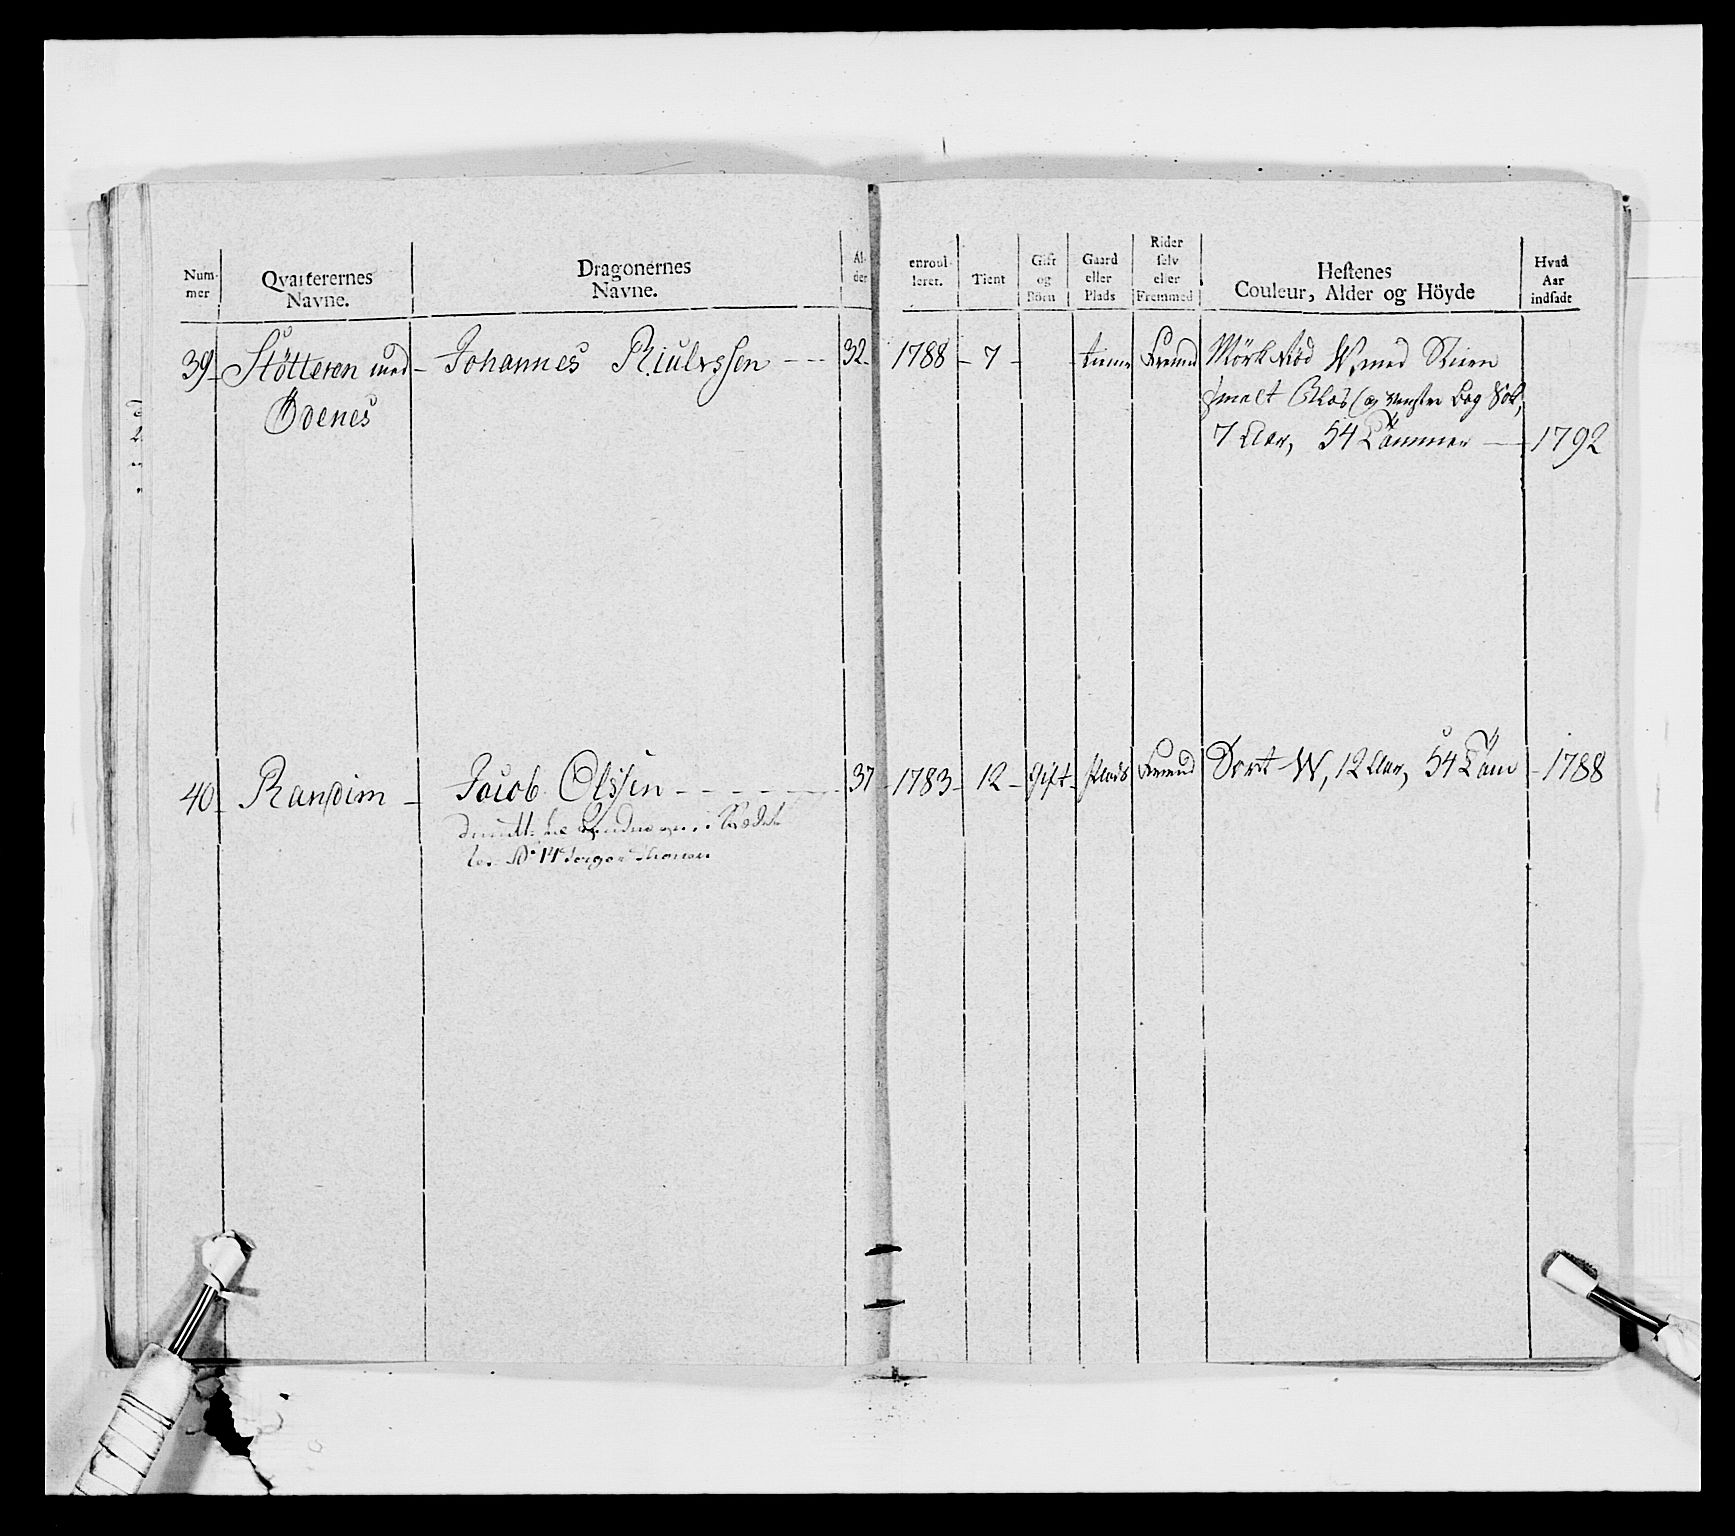 Num-
mer
Qvarterernes
Navne.
Dragonernes
Navne.
Al-
der
enroul-
leret.
Tient
Gift
og
Börn
Gaard
eller
Plads
Rider
selv
eller
Fremmed
Hestenes
Couleur, Alder og Höyde
Hvad
Aar
indsadt
39 Stötteren med Johannes Riulvssen 32 1788 7 tiener Fremd Mörk Röd W, med Stiern
Ödenes smalt Blis og venster Bag
7 Aar, 54 Tommer 1792
40 Randim Jacob Olssen 37 1783 12 Gift Plads Fremd Sort W, 12 Aar, 54 Tom 1788
No 14